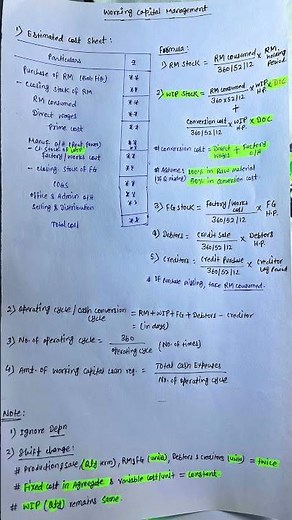 Working Capital Management
1) Estimated cost sheet :
Particulars ₹
Purchase of RM (Bal. fig) **
- Closing stock of RM **
RM consumed **
Direct wages **
Prime cost **
Manuf. o/h **
- Cl. stock of WIP **
Factory/works cost **
- closing stock of FG **
COGS **
office & Admin o/h **
Selling & Distribution **
Total cost **
Formula :
1) RM stock = RM consumed / 360/52/12 × RM. holding period
2) WIP stock = RM consumed / 360/52/12 × WIP H.P. × DOC
+
Conversion cost / 360/52/12 × WIP H.P. × DOC
# conversion cost = Direct wages + Factory o/h
# Assume : 100% in Raw material
50% in conversion cost
3) FG stock = Factory/works cost / 360/52/12 × FG H.P.
4) Debtors = Credit sale / 360/52/12 × Debtors H.P.
5) Creditors = Credit Purchase / 360/52/12 × Creditor
# If Purchase missing, take RM consumed.
2) Operating cycle / cash conversion cycle = RM + WIP + FG + Debtors - creditor
= (in days)
3) No. of operating cycle = 360 / operating cycle (No. of times)
4) Amt. of working capital loan req. = Total cash Expenses / No. of operating cycle
Note :
1) Ignore Depn
2) Shift change :
# Production/sale (Qty), RM & FG (units), Debtors & Creditors (units) = twice
# Fixed cost in Aggregate & variable cost/unit = constant.
# WIP (Qty) remains same.